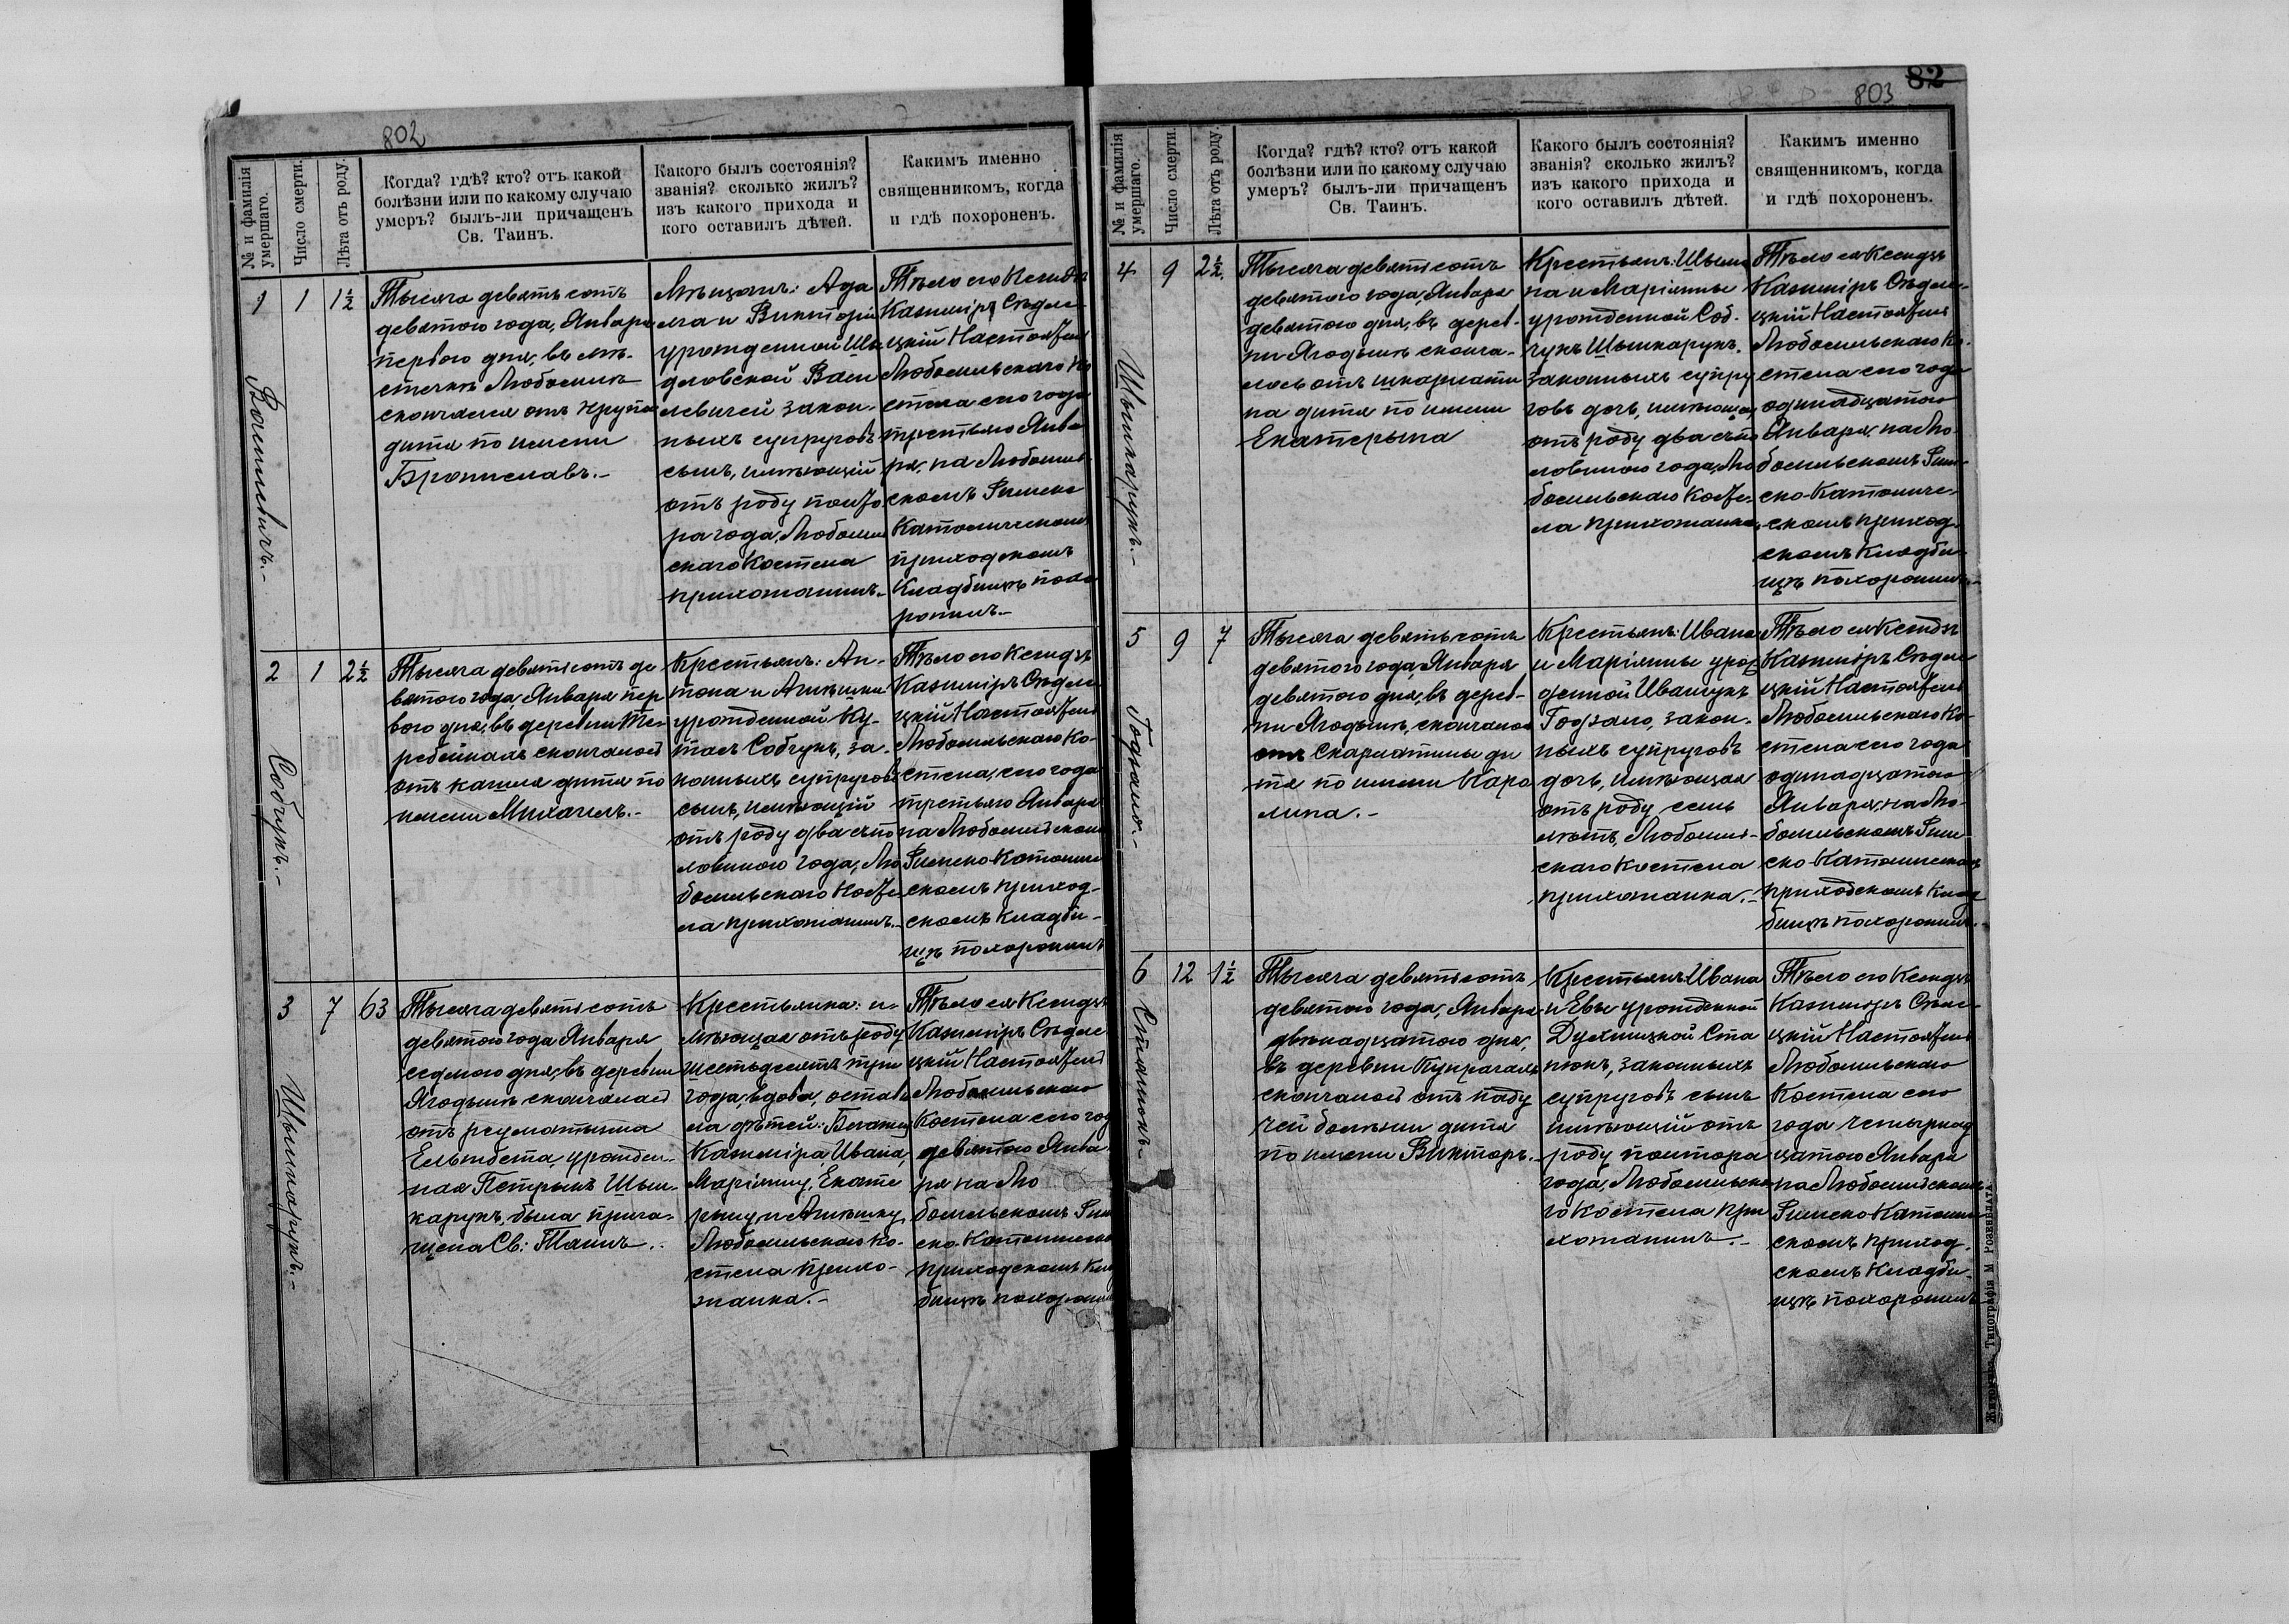 802
№ и фамилія
умершаго.
Число смерти.
Лѣта отъ роду.
Когда? гдѣ? кто? отъ какой
болѣзни или по какому случаю
умеръ? былъ-ли причащенъ
Св. Таинъ.
Какого былъ состоянія?
званія? сколько жилъ?
изъ какого прихода и
кого оставилъ дѣтей.
Каким​ъ именно
священникомъ, когда
и гдѣ похороненъ.
1
1
1½
Тысяча девятьсотъ
девятого года, Января
первого дня, въ мѣ-
стечкѣ Любомлѣ
скончался отъ крупа
дитя по имени
Брониславъ.-
Мѣщанъ: Ада
ма и Викторіи
урожденной
левичей закон-
ныхъ супруговъ
сынъ, имѣющій
отъ роду полто
ра года, Любомль
скаго Костела
прихожанинъ.-
Тѣло его Ксендзъ
Казимиръ Сѣдле
цкій Настоятель
Любомльскаго Ко
стела сего года
третьяго Янва
ря, на Любомль
скомъ Римско
Католическомъ
приходскомъ
Кладбищѣ похо
ронилъ.-
2
Собчукъ.-
1
2½
Тысяча девятьсотъ де
вятого года, Января пер
вого дня, въ деревни Те
ребейкахъ скончалось
отъ кашля дитя по
имени Михаилъ.-
Крестьянъ: Ан-
тона и Агнѣшки
урожденной Ку-
Собчукъ, за-
конныхъ супруговъ
сынъ, имѣющій
отъ роду два съ по
ловиною года, Лю
бомльскаго Косте-
ла прихожанинъ.-
Тѣло его Ксендзъ
Казимиръ Сѣдле
цкій Настоятель
Любомльскаго Ко-
стела, сего года
третьяго Января
на Любомльскомъ
Римско Католиче
скомъ приход-
скомъ Кладби-
щѣ похоронилъ
3
Шышкарукъ.-
7
63
Тысяча девятьсотъ
девятого года Января
седмого дня, въ деревни
Ягодынѣ скончалась
отъ реуматызма
Ельжбета, урожден-
ная Петрыкъ Шыш-
карукъ, была прича-
щена Св: Таинъ.-
Крестьянка: и-
мѣющая отъ роду
шестьдесятъ три
года, вдова, остави
ла дѣтей:
Казиміра, Ивана,
Маріянну, Екате
рыну, и Агнѣшку,
Любомльскаго Ко-
стела прихо-
жанка.-
Тѣло ея Ксендзъ
Казимиръ Сѣдле
цкій Настоятель
Любомльскаго
Костела сего года
девятого Янва
ря на Лю
бомльскомъ Рим
ско-Католическо
приходскомъ Клад
бищѣ похоронилъ
803
82
№ и фамилія
умершаго.
Число смерти.
Лѣта отъ роду.
Когда? гдѣ? кто? отъ какой
болѣзни или по какому случаю
умеръ? былъ-ли причащенъ
Св. Таинъ.
Какого былъ состоянія?
званія? сколько жилъ?
изъ какого прихода и
кого оставилъ дѣтей.
Какимъ именно
священникомъ, когда
и гдѣ похороненъ.
4
Шышкарукъ.-
9
2½
Тысяча девятьсотъ
девятого года, Января
девятого дня, въ дерев-
ни Ягодынѣ сконча-
лось отъ шкарлати
на дитя по имени
Екатерына
Крестьянъ:
на и Маріянны
урожденной Соб-
чукъ Шышкарукъ,
законныхъ супру
говъ дочь, имѣющая
отъ роду два съ по
ловиною года, Лю
бомльскаго Косте-
ла прихожанка.
Тѣло ея Ксендзъ
Казимиръ Сѣдле-
цкій Настоятель
Любомльскаго Ко-
стела сего года
одинадцатого
Января, на Лю-
бомльскомъ Рим-
ско-Католиче-
скомъ приход-
скомъ Кладби-
щѣ похоронилъ.-
5
9
7
Тысяча девятьсотъ
девятого года, Января
девятого дня, въ дерев-
ни Ягодынѣ, скончалось
отъ Скарлатины ди
тя по имени Каро
лина.-
Крестьянъ: Ивана
и Маріянны урож
денной Иващукъ
закон-
ныхъ супруговъ
дочь, имѣющая
отъ роду семь
лѣтъ, Любомль-
скаго Костела
прихожанка.-
Тѣло ея Ксендзъ
Казимиръ Сѣдле
цкій Настоятель
Любомльскаго Ко-
стела сего года
одинадцатого
Января, на Лю-
бомльскомъ Рим-
ско-Католическомъ
приходскомъ Клад
бищѣ похоронилъ.-
6
Стпнюкъ.-
12
1½
Тысяча девятьсотъ
девятого года, Января
двѣнадцатого дня,
въ деревни
скончалось отъ паду
чей болѣзни дитя
по имени Викторъ.-
Крестьянъ: Ивана
и Евы урожденной
Духницкой Ста
нюкъ, законныхъ
супруговъ сынъ
имѣющій отъ
роду полтора
года, Любомльска
го Костела при
хожанинъ.-
Тѣло его Ксендзъ
Казимиръ Сѣдле-
цкій Настоятель
Любомльскаго
Костела сего
года четырнад
цатого Января
на Любомльскомъ
Римско Католиче
скомъ приход-
скомъ Кладби-
щѣ похоронилъ
Житомиръ. Типографія М. Розенблата